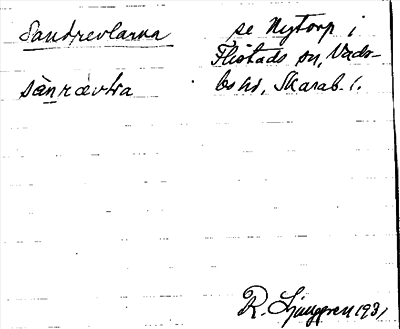 Sandrevlarna
sànrævɫa
se Nytorp i
Flistads sn, Vads-
bo hd, Skarab. l.
R. Ljunggren 1931